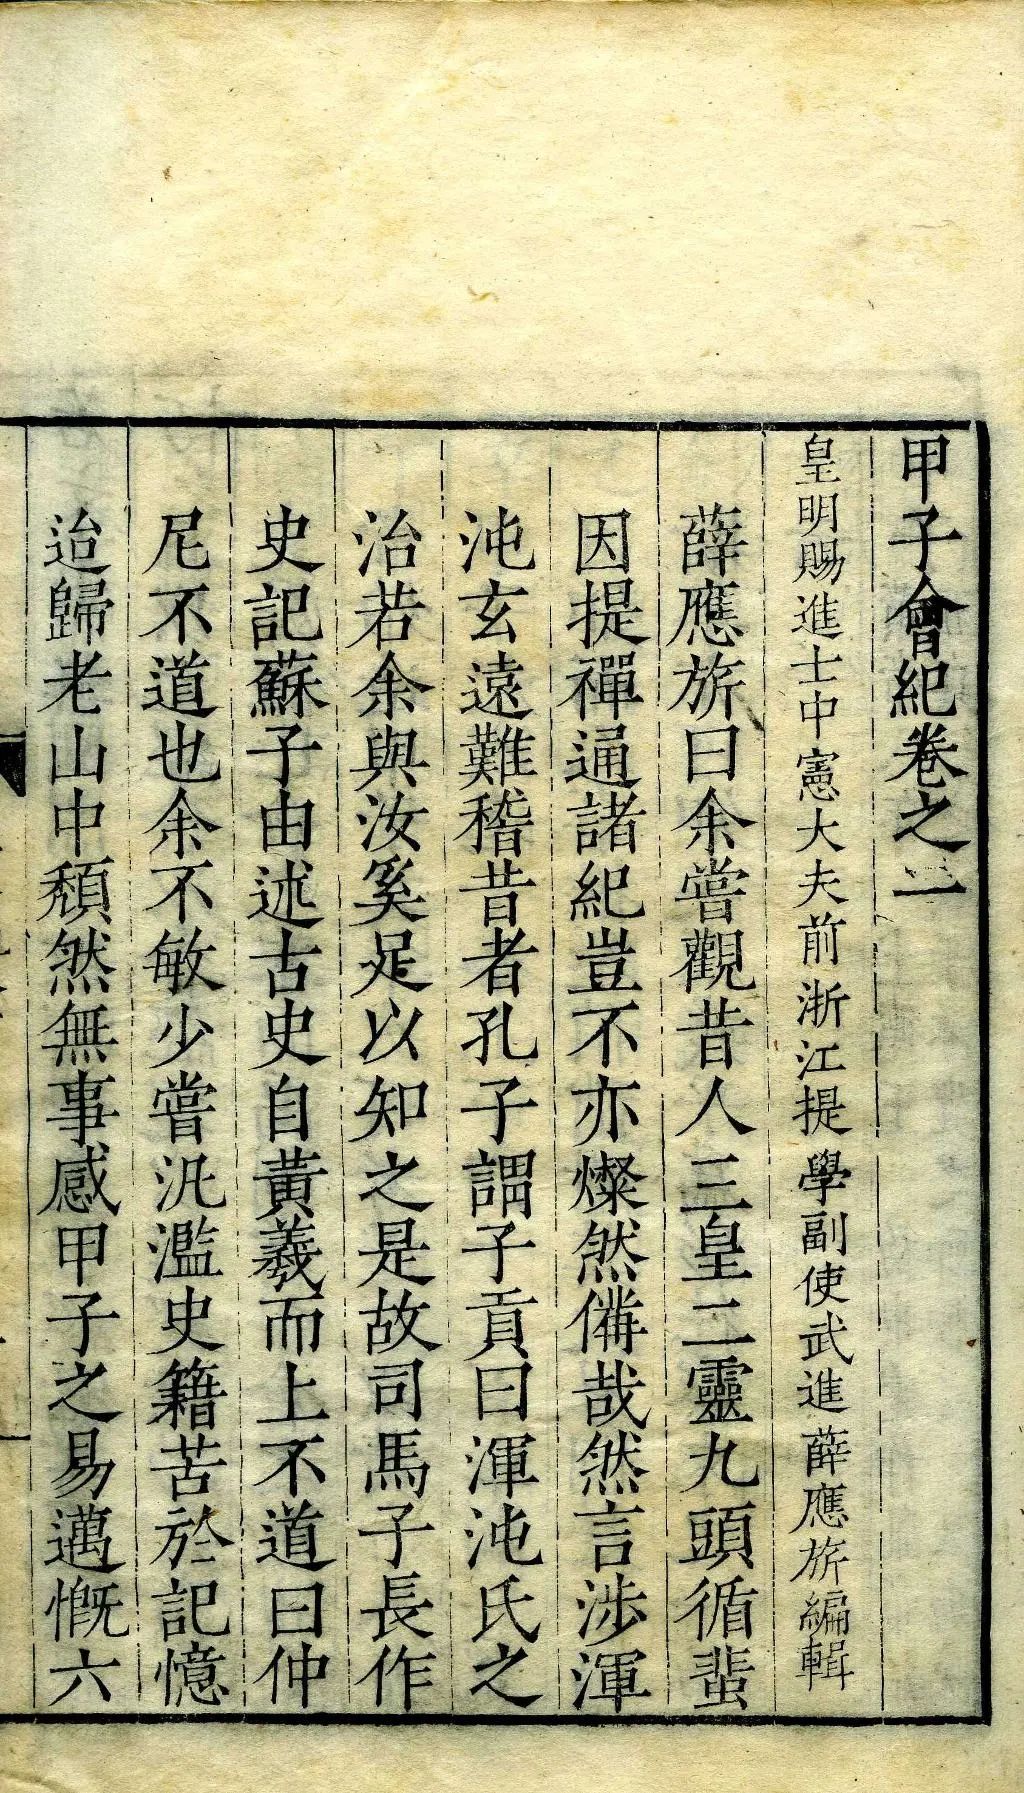 甲子會紀卷之一
皇明賜進士中憲大夫前浙江提學副使武進薛應旂編輯
薛應旂曰余嘗觀昔人三皇二靈九頭循蜚
因提禪通諸紀豈不亦燦然備哉然言涉渾
沌玄遠難稽昔者孔子謂子貢曰渾沌氏之
治若余與汝奚足以知之是故司馬子長作
史記蘇子由述古史自黃羲而上不道曰仲
尼不道也余不敏少嘗汎濫史籍苦於記憶
迨歸老山中頹然無事感甲子之易邁慨六